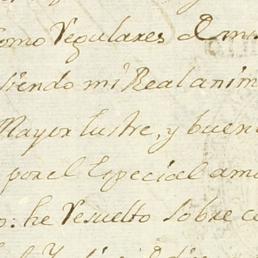 como Regulares de mi
siendo mi Real anim
Mayor lustre, y buen
por el Especial am
o: he Resuelto sobre c